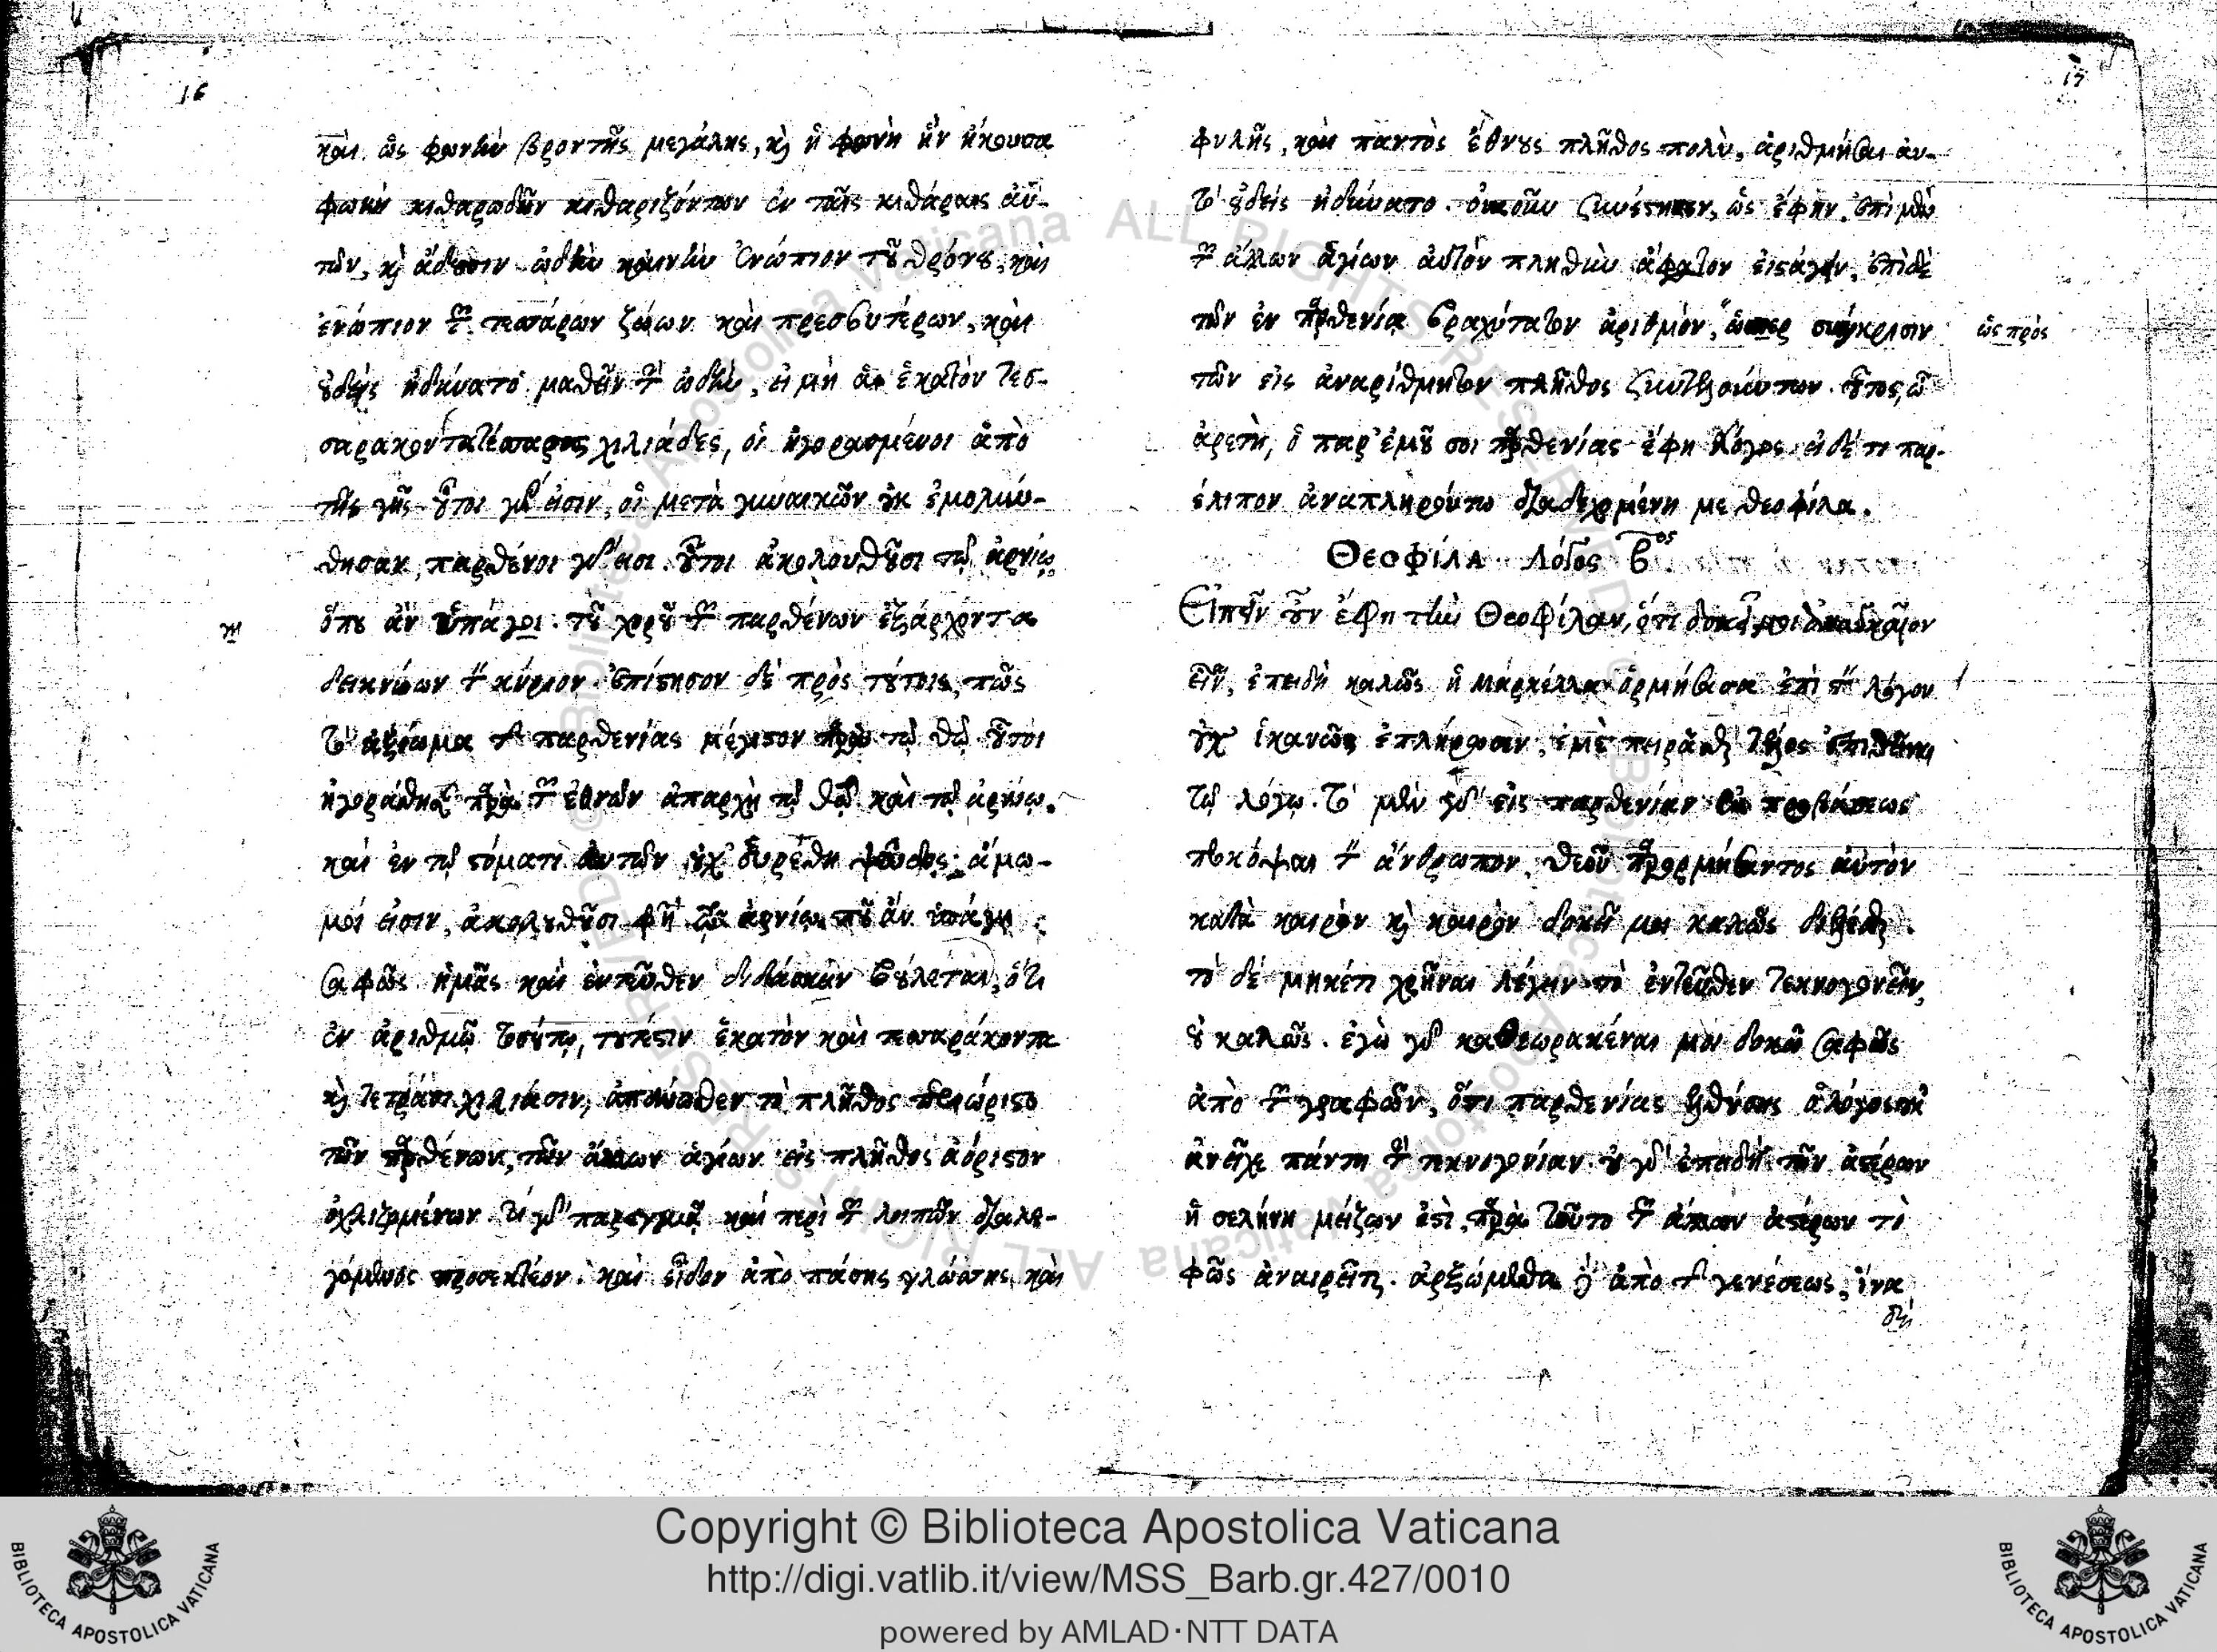 16
καὶ ὡς φωνὴν βροντῆς μεγάλης, κὶ ἡ φωνὴ ἣν ἤκουσα
φωνὴν κιθαρωδῶν κιθαριζόντων ἐν ταῖς κιθάραις αὐ-
τῶν, κὶ ἄδουσιν ὠδὴν καινὴν ἐνώπιον τοῦ θρόνου, καὶ
ἐνώπιον τῶν τεσσάρων ζώων καὶ πρεσβυτέρων, καὶ
οὐδεὶς ἠδύνατο μαθεῖν τὴν ὠδὴν, εἰ μὴ αἱ ἑκατὸν τεσ-
σαρακοντατέσσαρες χιλιάδες, οἱ ἠγορασμένοι ἀπὸ
τῆς γῆς οὗτοι γάρ εἰσιν, οἳ μετὰ γυναικῶν οὐκ ἐμολύν-
θησαν, παρθένοι γάρ εἰσι. οὗτοι ἀκολουθοῦσι τῷ ἀρνίῳ
ὅπου ἂν ὑπάγοι. τοῦ χοροῦ τῶν παρθένων ἐξάρχοντα
δεικνύων τὸν κύριον. ἐπίστησον δὲ πρὸς τούτοις, πῶς
τὸ ἀξίωμα τῆς παρθενίας μέγιστον παρὰ τῷ θῷ οὗτοι
ἠγοράσθησαν παρὰ τῶν ἐθνῶν ἀπαρχὴ τῷ θῷ καὶ τῷ ἀρνίῳ.
καὶ ἐν τῷ στόματι αὐτῶν οὐχ εὑρέθη ψεῦδος· ἄμω-
μοί εἰσιν, ἀκολουθοῦσι φησὶ τῷ ἀρνίῳ ποῦ ἂν ὑπάγῃ
σαφῶς ἡμᾶς καὶ ἐντεῦθεν διδάσκειν βούλεται, ὅτι
ἐν ἀριθμῷ τούτῳ, τουτέστιν ἑκατὸν καὶ τεσσαράκοντα
κὶ τετράσι χιλιάσιν, ἄνωθεν τὸ πλῆθος περιώριστο
τῶν παρθένων, τῶν ἄλλων ἁγίων εἰς πλῆθος ἀόριστον
ὀχλιζομένων. τί γὰρ παρεγγυᾷ καὶ περὶ τῶν λοιπῶν διαλε-
γόμενος προσεκτέον. καὶ εἶδον ἀπὸ πάσης γλώσσης, καὶ
15
φυλῆς, καὶ παντὸς ἔθνους πλῆθος πολὺ, ἀριθμῆσαι αὐ-
τὸ οὐδεὶς ἠδύνατο. οὐκοῦν συνέστηκεν, ὡς ἔφην, ἐπὶ μὲν
τῶν ἄλλων ἁγίων αὐτὸν πληθὺν ἄφατον εἰσάγειν, ἐπὶ δὲ
τῶν ἐν παρθενίᾳ βραχύτατον ἀριθμὸν, ὥσπερ σύγκρισιν
ὡς πρὸς
τῶν εἰς ἀναρίθμητον πλῆθος συντελούντων. οὗτος, ὦ
ἀρετὴ, ὁ παρ' ἐμοῦ σοι παρθενίας ἔφη λόγος. εἰ δέ τι παρ-
έλιπον ἀναπληρούτω διαδεχομένη με θεοφίλα.
Θεοφίλα Λόγος β ος
Εἰπεῖν οὖν ἔφη τὴν Θεοφίλαν, ὅτι δοκεῖ μοι δίκαιον
εἶν, ἐπειδὴ καλῶς ἡ Μάρκελλα ὁρμήσασα ἐπὶ τὸν λόγον
οὐχ ἱκανῶς ἐπλήρωσεν, ἐμὲ πειρᾶσθαι τέλος ἐπιθεῖναι
τῷ λόγῳ. τὸ μὲν γὰρ εἰς παρθενίαν ἐκ προβάσεως
προκόψαι τὸν ἄνθρωπον, θεοῦ παρορμήσαντος αὐτὸν
κατὰ καιρὸν κὶ καιρὸν δοκεῖ μοι καλῶς διελθεῖν.
τὸ δὲ μηκέτι χρῆναι λέγειν τὸ ἐντεῦθεν τεκνογονεῖν,
οὐ καλῶς. ἐγὼ γὰρ καθεωρακέναι μοι δοκῶ σαφῶς
ἀπὸ τῶν γραφῶν, ὅτι παρθενίας ἐλθούσης ὁ λόγος οὐκ
ἀνεῖχε πάντη τὴν τεκνογονίαν. οὐ γὰρ ἐπειδὴ τῶν ἀστέρων
ἡ σελήνη μείζων ἐστὶ, παρὰ τοῦτο τῶν ἄλλων ἀστέρων τὸ
φῶς ἀναιρεῖται. ἀρξώμεθα δὲ ἀπὸ τῆς γενέσεως, ἵνα
δὴ
Copyright © Biblioteca Apostolica Vaticana
http://digi.vatlib.it/view/MSS_Barb.gr.427/0010
powered by AMLAD·NTT DATA
BIBLIOTECA APOSTOLICA VATICANA
BIBLIOTECA APOSTOLICA VATICANA